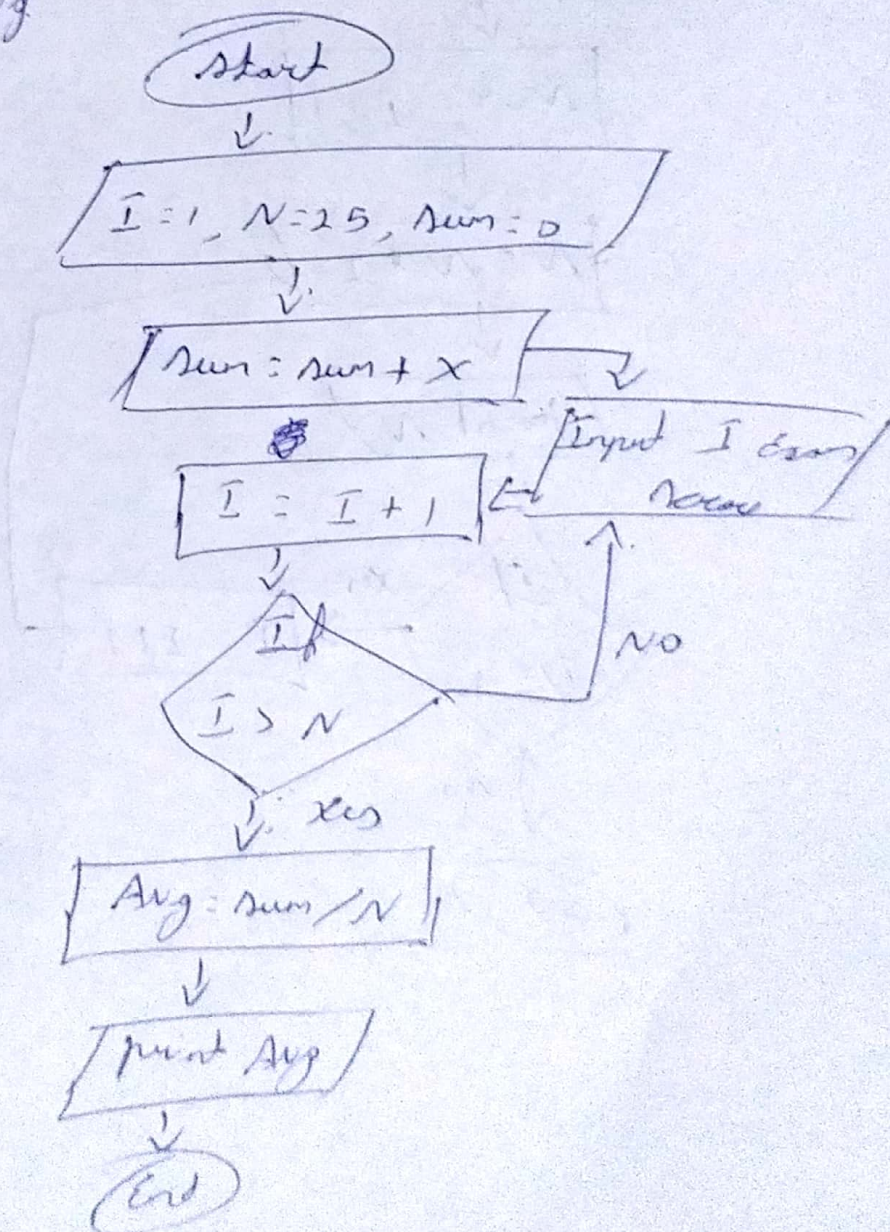 g
start
I = 1, N = 25, sum = 0
sum = sum + X
Input I exam
score
I = I + 1
If
I > N
NO
Yes
Avg = sum / N
print Avg
End